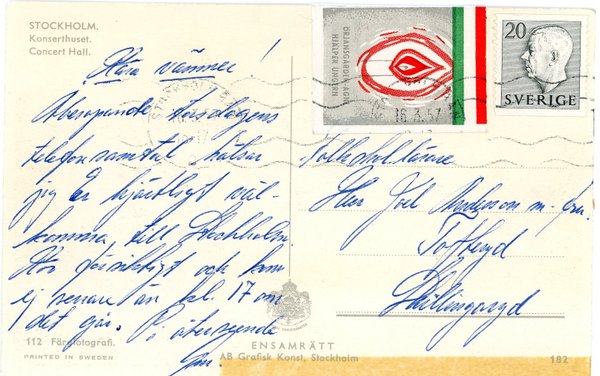 STOCKHOLM.
Konserthuset.
Concert Hall.
Kära vänner!
Åberopande torsdagens
telefonsamtal hälsar
jag Er hjärtligt väl-
komna till Stockholm
Kör försiktigt och kom
ej senare än kl. 17 om
det går. På återseende
112 Färgfotografi.
PRINTED IN SWEDEN
ENSAMRÄTT
AB Grafisk Konst, Stockholm
182
HJÄLPER UNGERN
20
SVERIGE
STOCKHOLM
16.3.57
Folkskolläraren
Herr Joel Andersson m. fru.
Toftryd
Skillingaryd